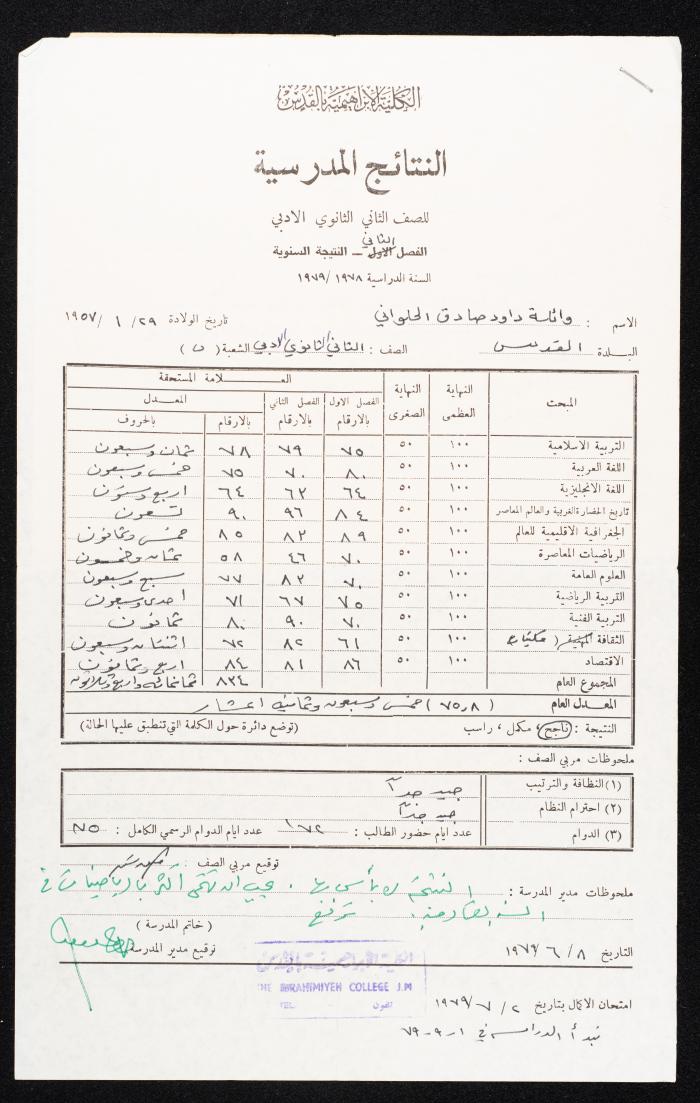 الكلية الابراهيمية بالقدس
النتائج المدرسية
للصف الثاني الثانوي الادبي
الثاني
الفصل الاول — النتيجة السنوية
السنة الدراسية ١٩٧٨ /١٩٧٩
الاسم : وائلة داود صادق الحلواني تاريخ الولادة ٢٩ / ١ / ١٩٥٧
البلدة القدس الصف : الثاني الثانوي الادبي الشعبة ( )
المبحث النهاية العظمى النهاية الصغرى العـلامة المستحقة
الفصل الاول بالارقام الفصل الثاني بالارقام المعـدل بالارقام بالحروف
التربية الاسلامية ١٠٠ ٥٠ ٧٥ ٧٩ ٧٨ ثمان وسبعون
اللغة العربية ١٠٠ ٥٠ ٨٠ ٧٠ ٧٥ خمس وسبعون
اللغة الانجليزية ١٠٠ ٥٠ ٦٤ ٦٣ ٦٤ اربع وستون
تاريخ الحضارة الغربية والعالم المعاصر ١٠٠ ٥٠ ٨٤ ٩٦ ٩٠ تسعون
الجغرافية الاقليمية للعالم ١٠٠ ٥٠ ٨٩ ٨٢ ٨٥ خمس وثمانون
الرياضيات المعاصرة ١٠٠ ٥٠ ٧٠ ٤٦ ٥٨ ثمان وخمسون
العلوم العامة ١٠٠ ٥٠ ٧٠ ٨٣ ٧٧ سبع وسبعون
التربية الرياضية ١٠٠ ٥٠ ٧٥ ٦٧ ٧١ احدى وسبعون
التربية الفنية ١٠٠ ٥٠ ٧٠ ٩٠ ٨٠ ثمانون
الثقافة المهنية ( مكتبات ١٠٠ ٥٠ ٦١ ٨٢ ٧٢ اثنتان وسبعون
الاقتصاد ١٠٠ ٥٠ ٨٦ ٨١ ٨٤ اربع وثمانون
المجموع العام ٨٣٤ ثمانمائة واربع وثلاثون
المعدل العام (٧٥,٨) خمس وسبعون وثمانية اعشار
النتيجة : ناجح ، مكمل ، راسب (توضع دائرة حول الكلمة التي تنطبق عليها الحالة)
ملحوظات مربي الصف :
(١) النظافة والترتيب جيد جداً
(٢) احترام النظام جيد جداً
(٣) الدوام عدد ايام حضور الطالب : ١٧٢ عدد ايام الدوام الرسمي الكامل : ١٧٥
توقيع مربي الصف :
ملحوظات مدير المدرسة : النتيجة لا بأس بها . يجب ان تهتمي اكثر بالرياضيات في
السنة القادمة . ترفع
( خاتم المدرسة )
التاريخ ٨ / ٦ / ١٩٧٩ توقيع مدير المدرسة
الكلية الابراهيمية بالقدس
THE IBRAHIMIYEH COLLEGE J.M
TEL. تلفون
امتحان الاكمال بتاريخ ٢ / ٧ / ١٩٧٩
تبدأ الدراسة في ١-٩-٧٩